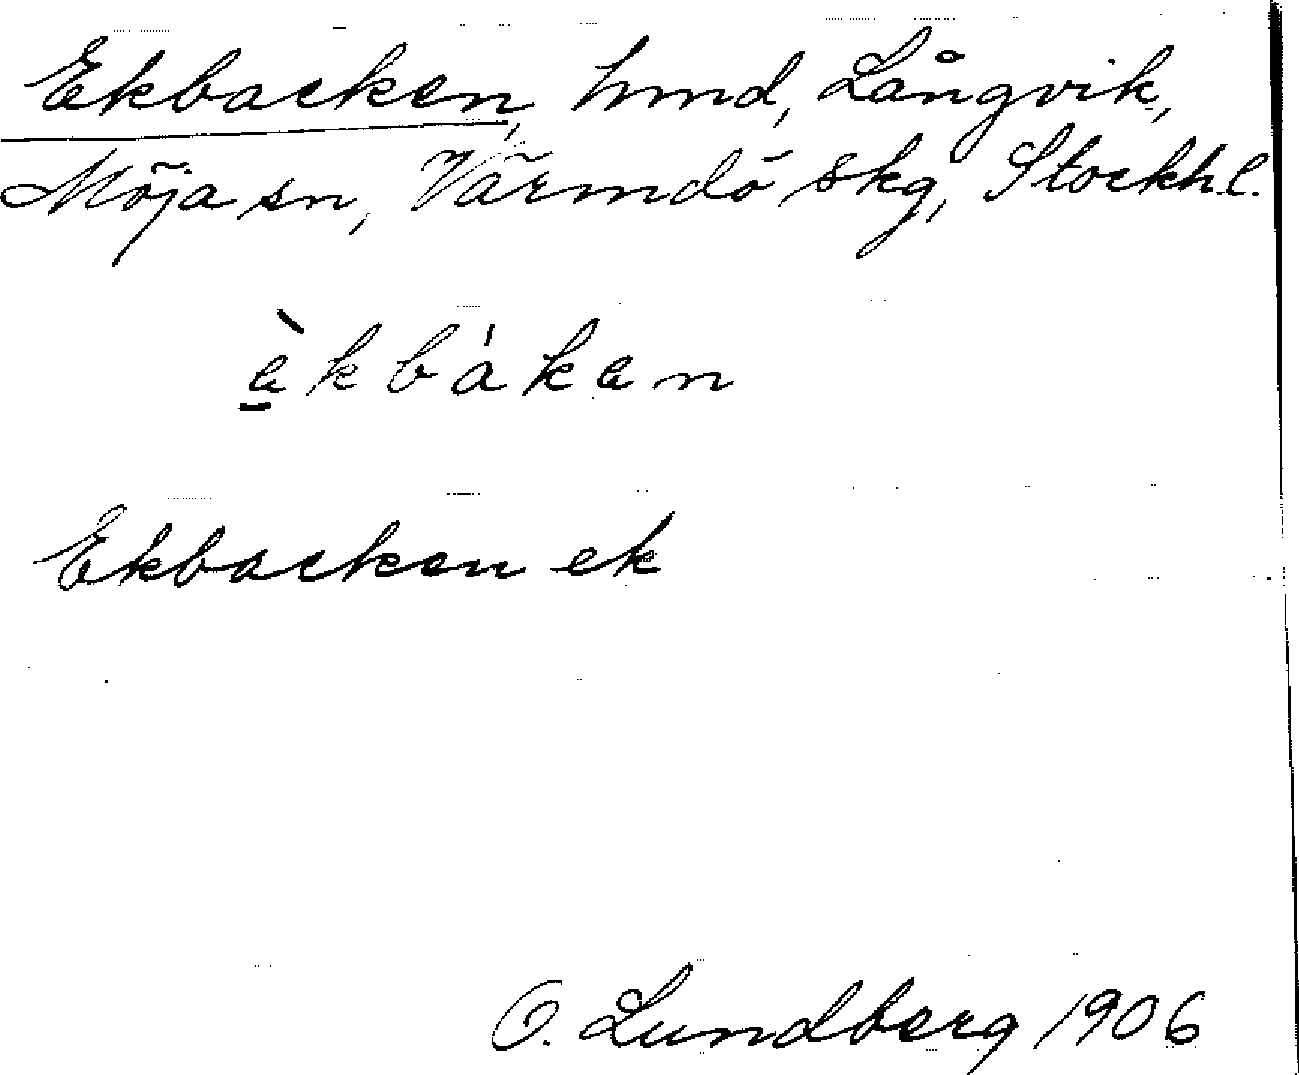 Ekbacken, hmd, Långvik,
Möja sn, Värmdö skg, Stockh.l.
è̱kbáken
Ekbacken ek
O. Lundberg 1906